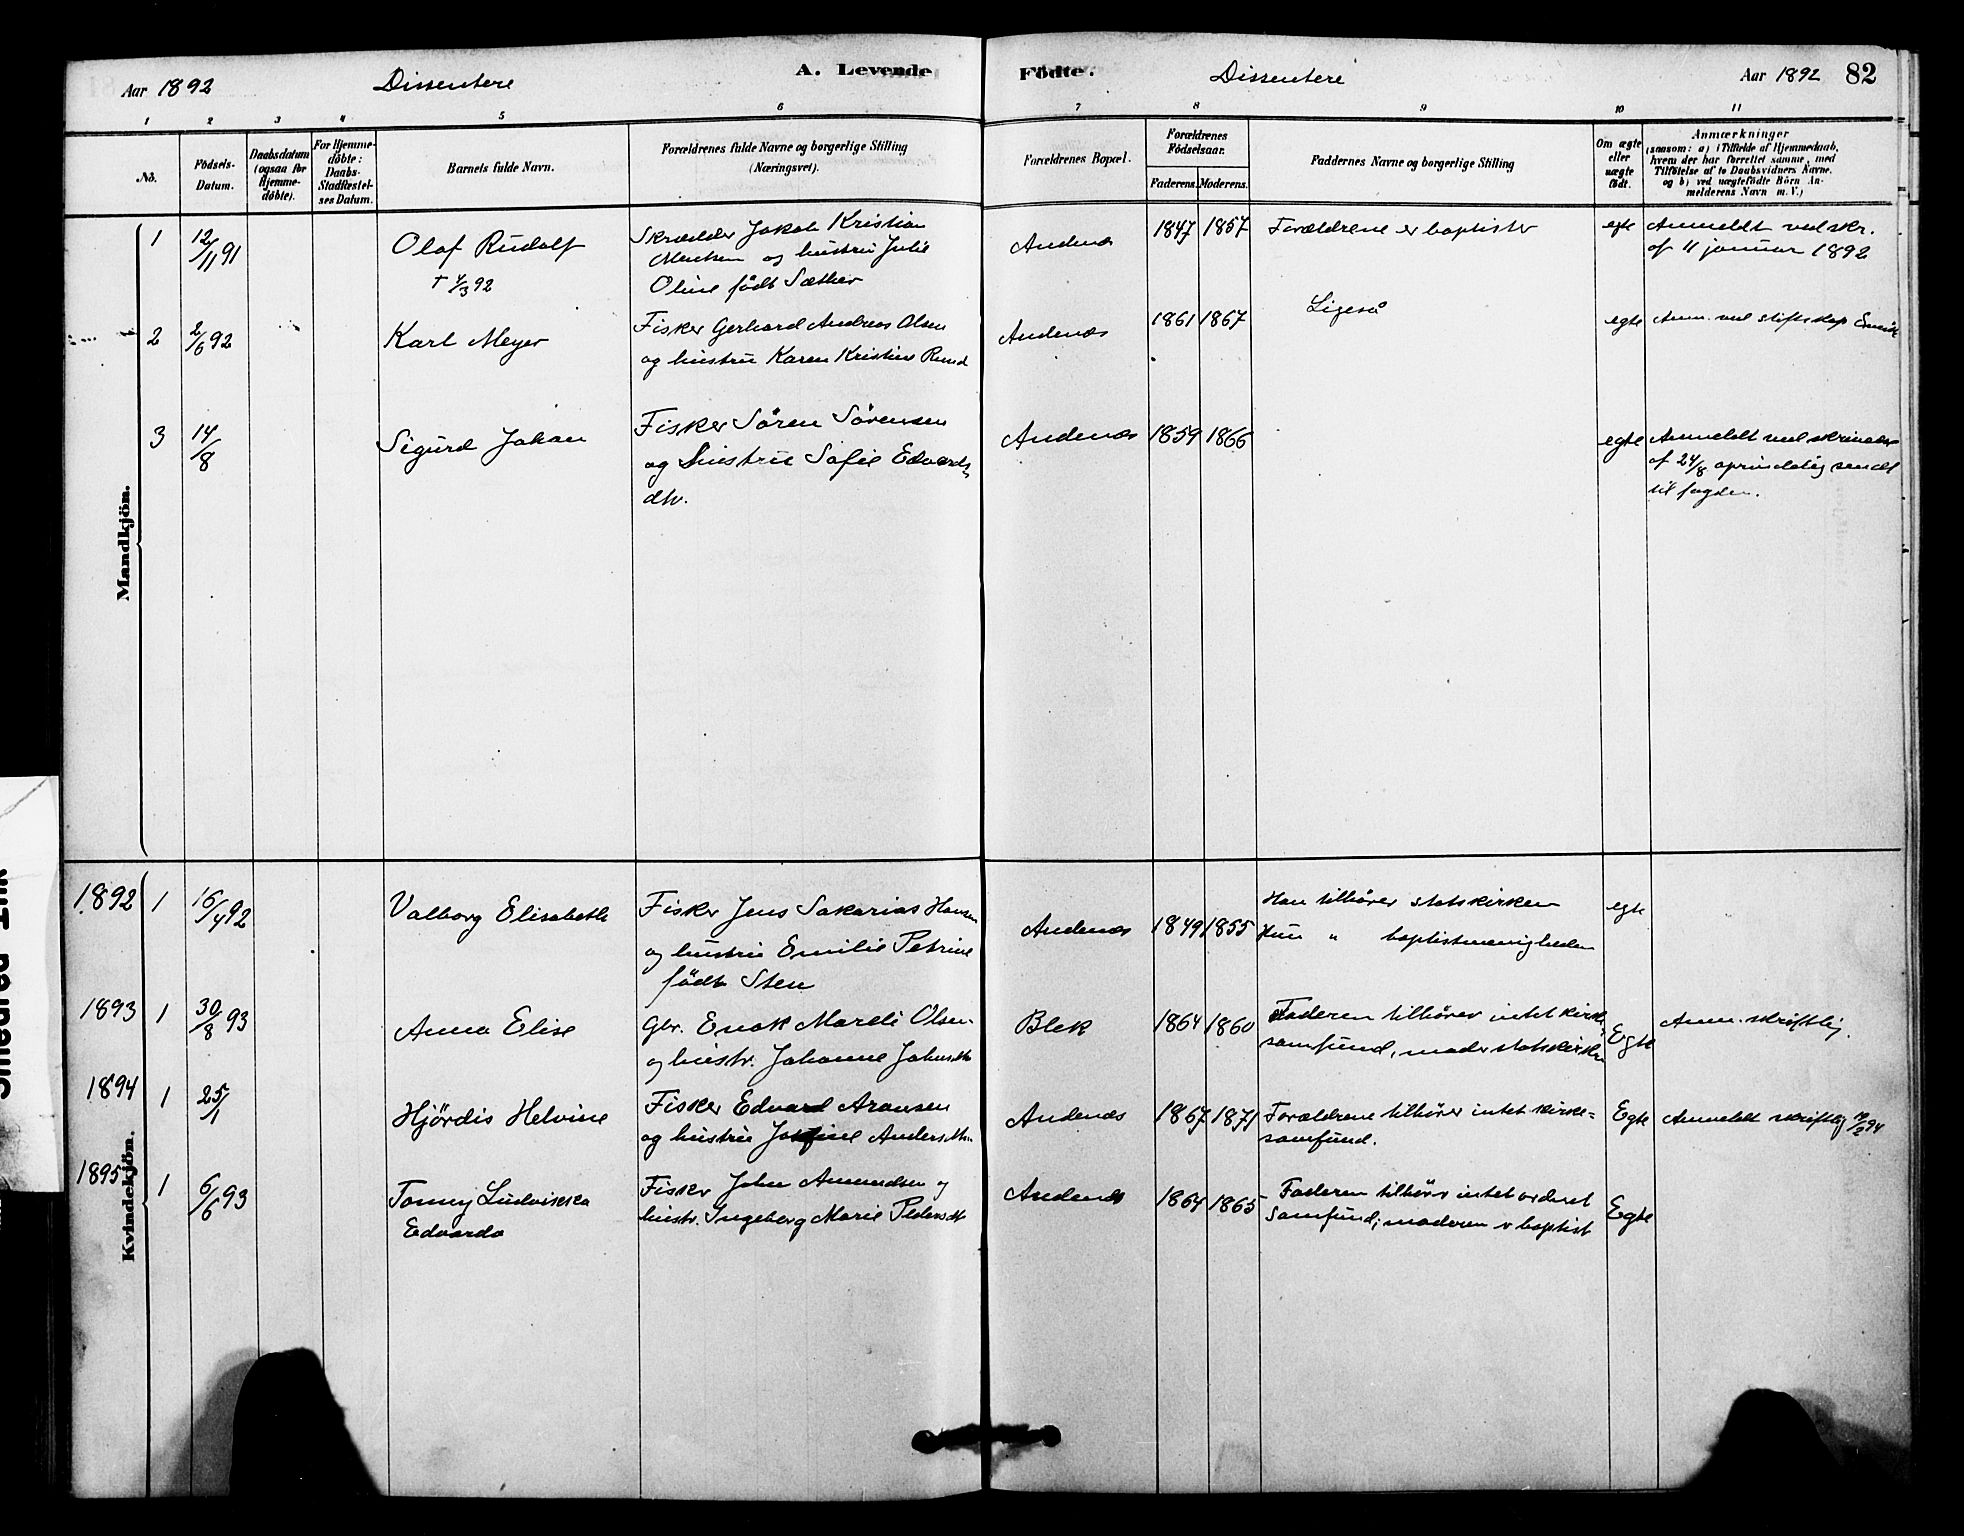 Aar 1892 Dissentere A. Levende Födte. Dissentere Aar 1892 82
1 2 3 4 5 6 7 8 9 10 11
No. Födsels-Datum. Daabsdatum (ogsaa for Hjemme-döbte). For Hjemme-döbte: Daabs-Stadfæstel-ses Datum. Barnets fulde Navn. Forældrenes fulde Navne og borgerlige Stilling (Næringsvei). Forældrenes Bopæl. Forældrenes Födselsaar. Faderens. Moderens. Faddernes Navne og borgerlige Stilling Om ægte eller uægte födt. Anmærkninger (saasom: a) i Tilfælde af Hjemmedaab, hvem der har forrettet samme, med Tilföielse af to Daabsvidners Navne, og b) ved uægtefödte Börn An-melderens Navn m. V.)
Mandkjön.
1 12/11 91 Olaf Rudolf Skrædder Jakob Kristian Andenæs 1847 1857 Forældrene er baptister egte Anmeldt ved skr.
og hustru Julie af 11 januar 1892
† 4/3 92 Oline födt Sæther
2 2/6 92 Karl Meyer Fisker Gerhard Andreas Olsen Andenæs 1861 1867 Ligeså egte Anm. ved
og hustru Karen Kristine
3 14/8 Sigurd Johan Fisker Sören Sörensen Andenæs 1859 1866 egte Anmeldt ved skrivelse
og hustru Sofie Edvards af 24/8 oprindelig sendt
dtr. til fogden.
Kvindekjön.
1892 1 16/4 92 Valborg Elisabeth Fisker Jens Sakarias Hansen Andenæs 1849 1855 Han tilhörer statskirken egte
og hustru Emilie Petrine Hun " baptistmenigheden
födt Sten
1893 1 30/8 93 Anna Elise Gbr. Enok Mareli Olsen Blek 1864 1860 Faderen tilhörer intet kirke- Egte Anm. skriftlig.
og hustr. Johanne samfund, moder statskirken
1894 1 25/1 Hjördis Helvine Fisker Edvard Aronsen Andenæs 1867 1871 Forældrene tilhörer intet kirke= Egte Anmeldt skriftlig
og hustru Josefine samfund.
1895 1 6/6 93 Tonny Ludvikka Fisker John Amundsen og Andenæs 1864 1865 Faderen tilhörer intet ordnet Egte
Edvarda hustr. Ingeborg Marie Pedersdtr samfund; moderen er baptist